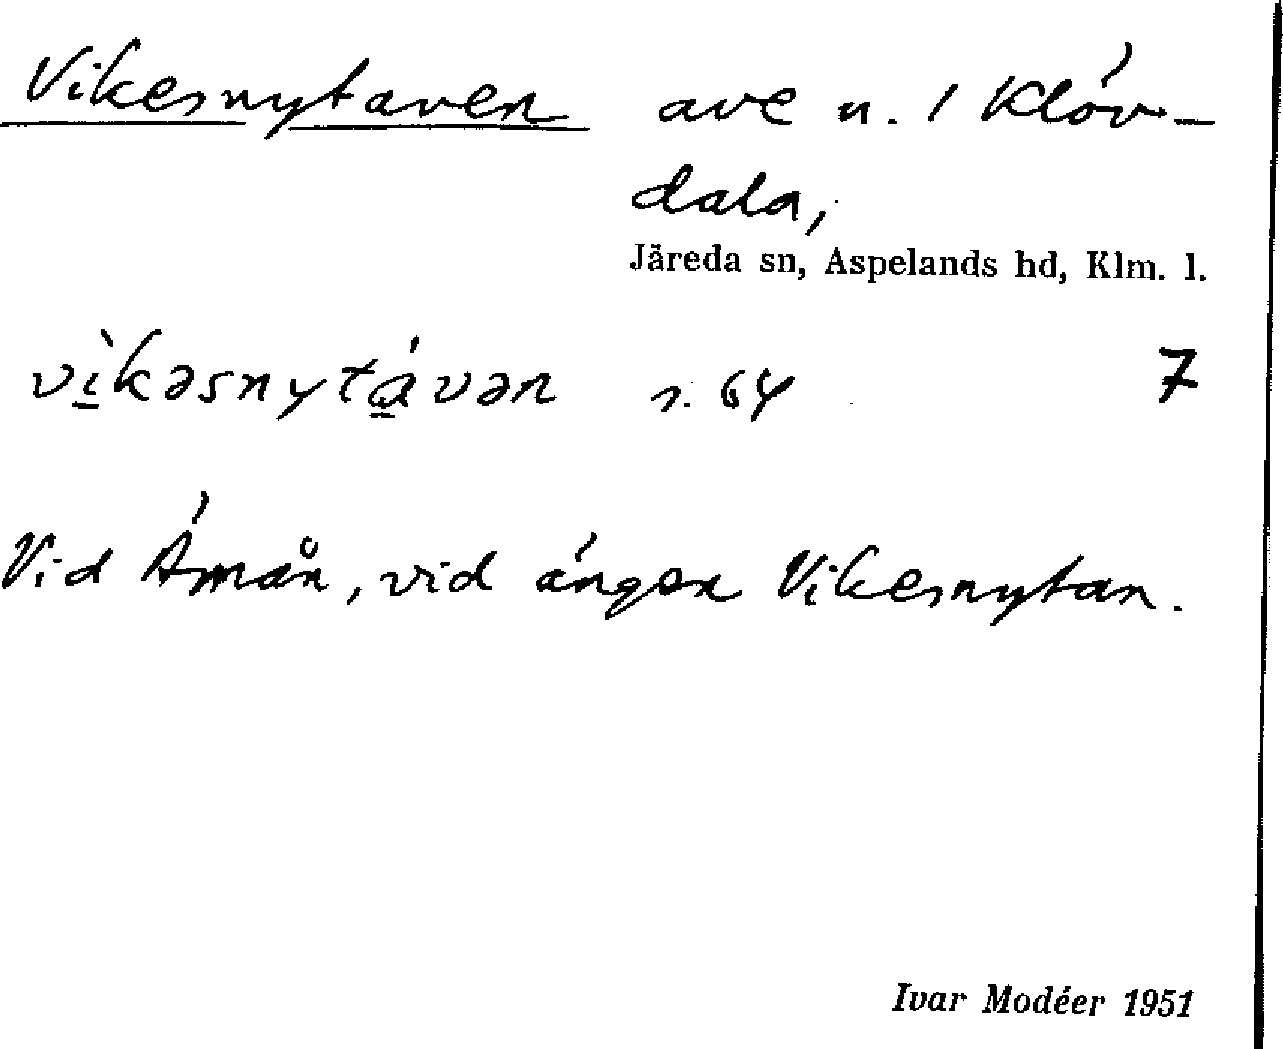 Vikesnytaven ave n. 1 Klöv-
dala,
Järeda sn, Aspelands hd, Klm. l.
vìkəsnytávən s. 64 7
Vid Åmån, vid ängen Vikesnytan.
Ivar Modéer 1951